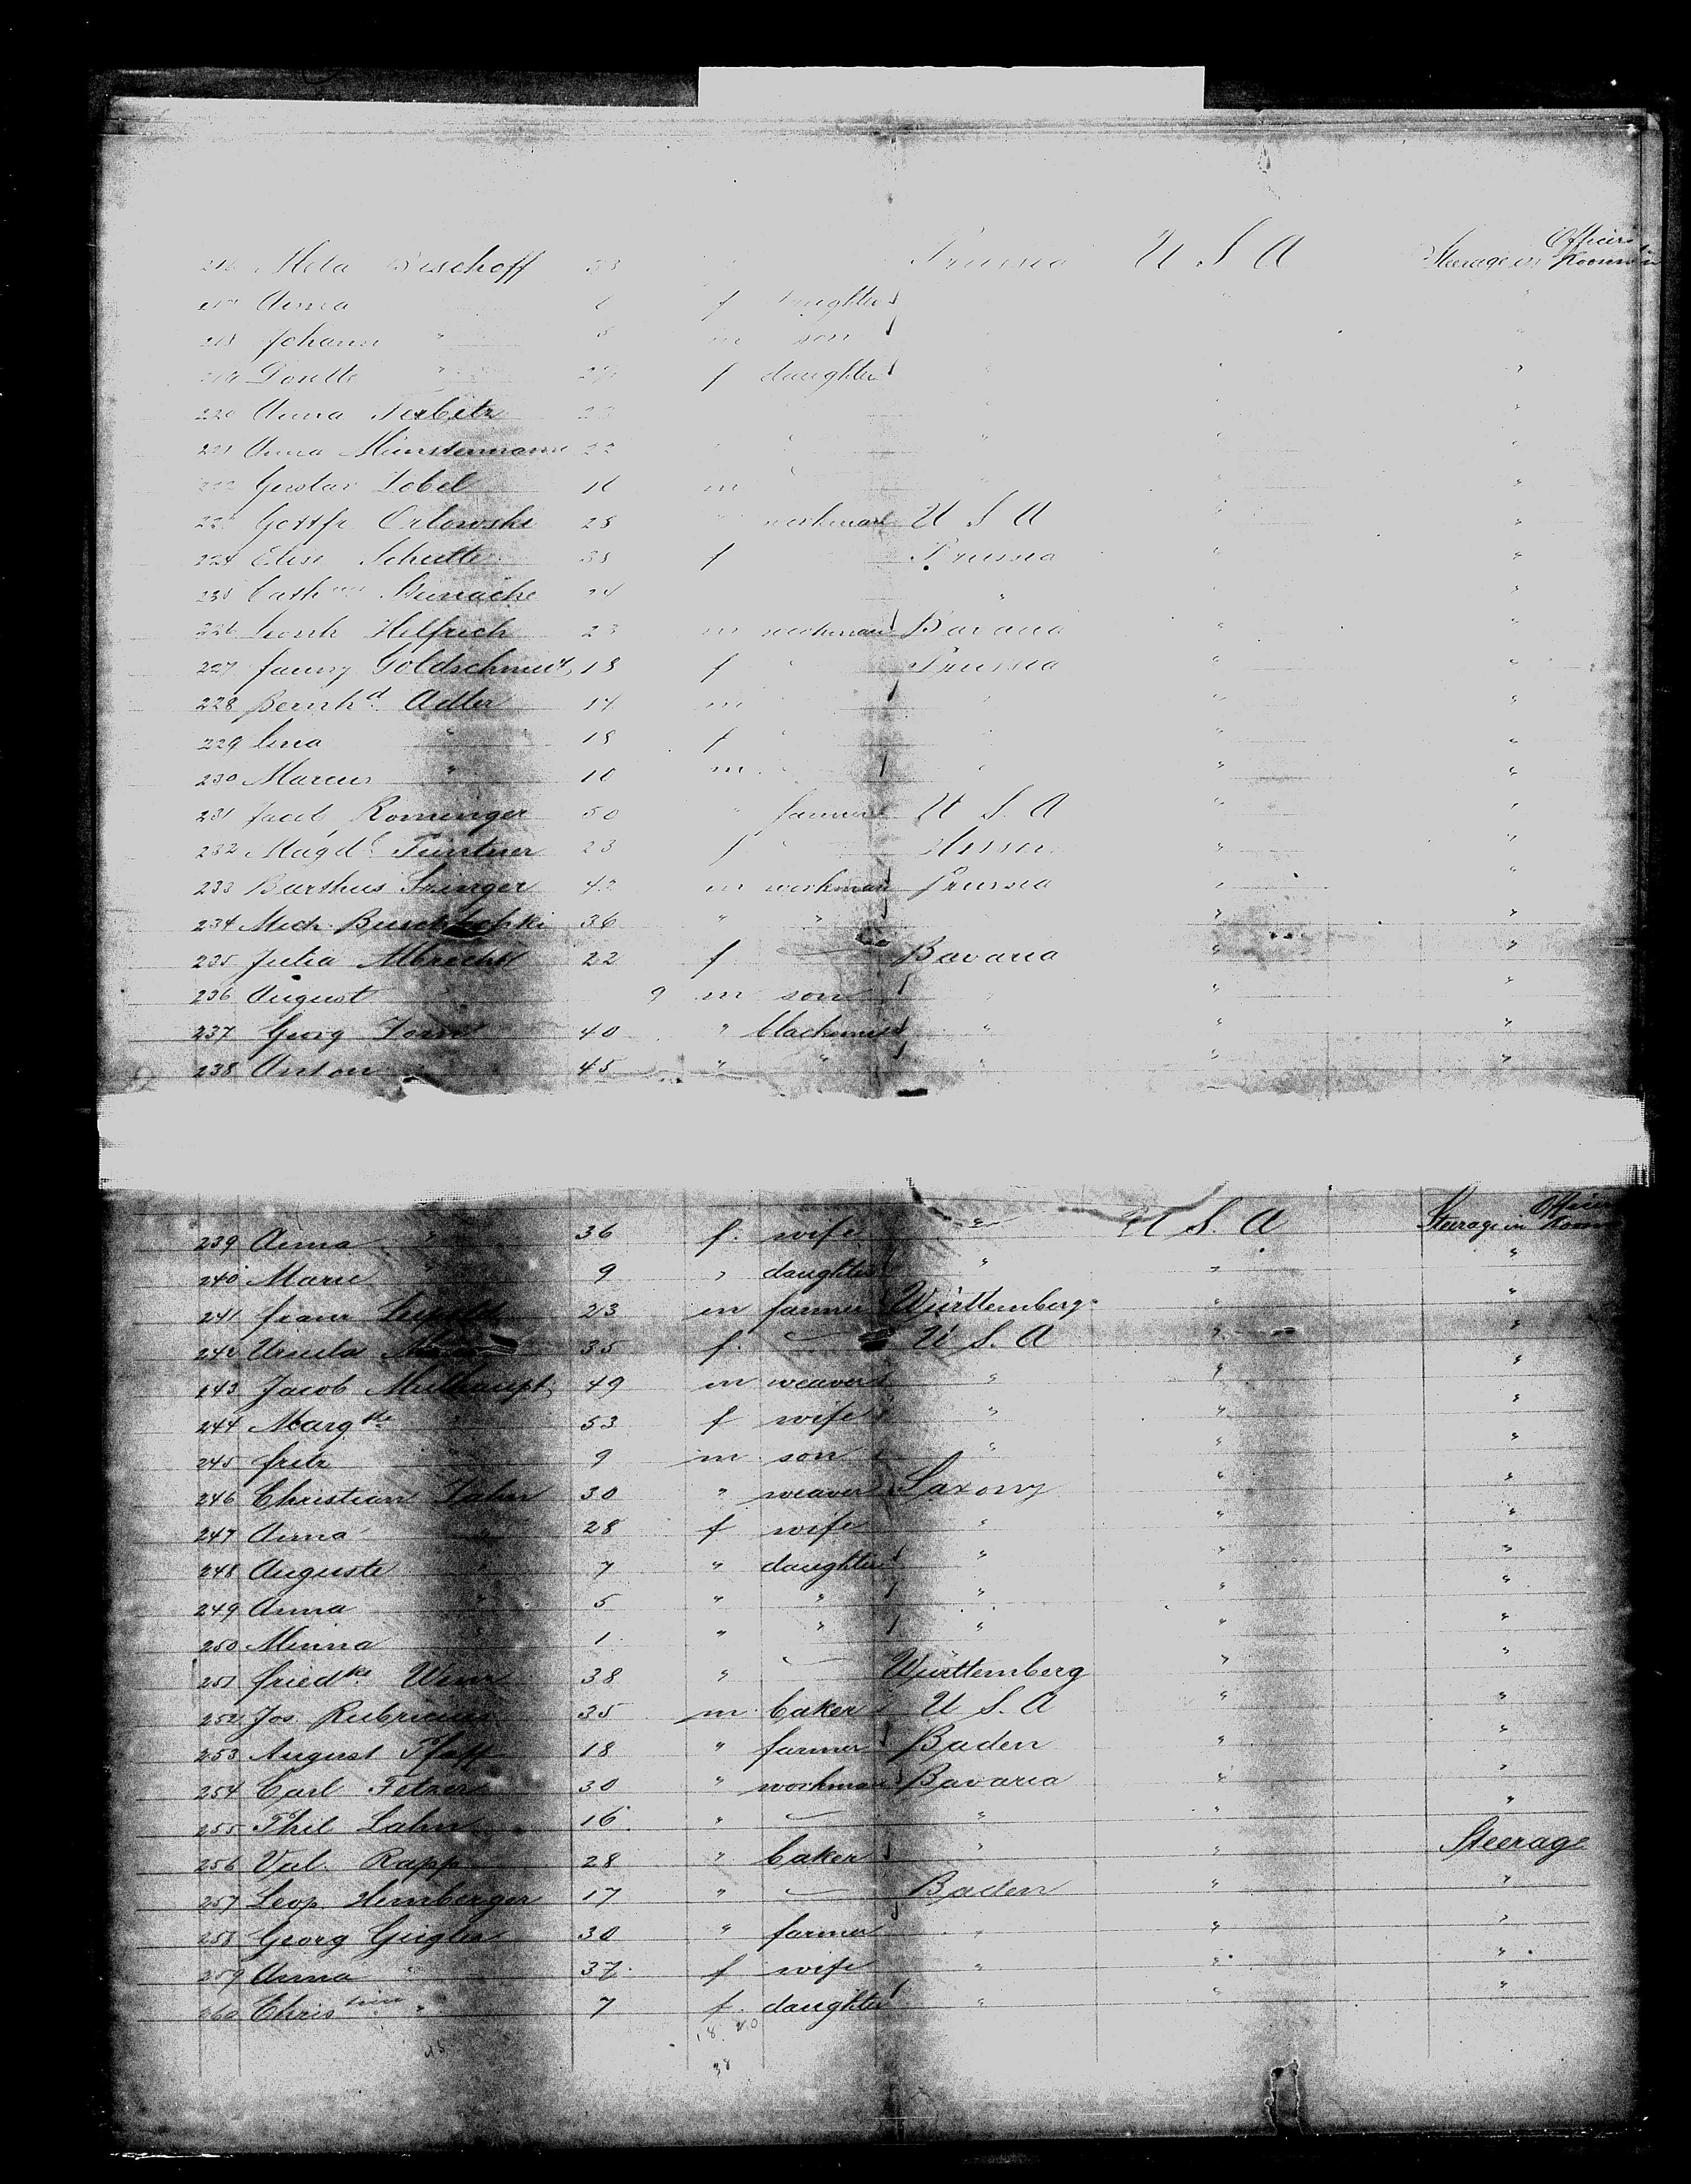 216 Meta Bischoff 33 Prussia U S A Steerage in Officers Rooms
217 Anna 6 f daughter
218 Johann " 8 m son "
219 Dorette " f daughter "
220 Anna "
221 Anna Münstermann 22 " " "
222 Gustav Zobel 16 m " "
223 Gottfr Orlowski 28 " workman U S A " "
224 Elise Schutte 38 f Prussia " "
225 Cath 24 " "
226 Leonh Helfrich 23 m workman Bavaria " "
227 Fanny Goldschmidt 18 f Prussia " "
228 Bernhd Adler 14 m " " "
229 Lina " 18 f " " "
230 Marcus " 10 m " " "
231 Jacob Rominger 50 " farmer U S. A " "
232 Magd. 23 f Hessen " "
233 m workman Prussia " "
234 Mich. 36 " " " "
235 Julia Albrecht 22 f Bavaria " "
236 August 9 m son " " "
237 Georg 40 " blacksmith " " "
238 Anton 45 " " " " "
239 Anna " 36 f. wife " U S. A Steerage in Officers Rooms
240 Marie " 9 " daughter " " "
241 Franz 23 m farmer Württemberg " "
242 Ursula 35 f. U S. A " "
243 Jacob Mulhaupt 49 m weaver " " "
244 Margthe 53 f wife " " "
245 Fritz 9 m son " " "
246 Christian Jahn 30 " weaver Saxony " "
247 Anna " 28 f wife " " "
248 Auguste " 7 " daughter " " "
249 Anna " 5 " " " " "
250 Minna " 1 " " " " "
251 Friedke 38 " Württemberg " "
252 Jos. 35 m baker U S. A " "
253 August Pfaff 18 " farmer Baden " "
254 Carl Fetzer 30 " workman Bavaria " "
255 Phil Lahn 16 " " " "
256 Val. Rapp 28 " baker " " Steerage
257 Leop. Himberger 17 " Baden " "
258 Georg Geigler 30 " farmer " " "
259 Anna " 37 f wife " " "
260 Christine " 7 f. daughter " " "
18. 20
38